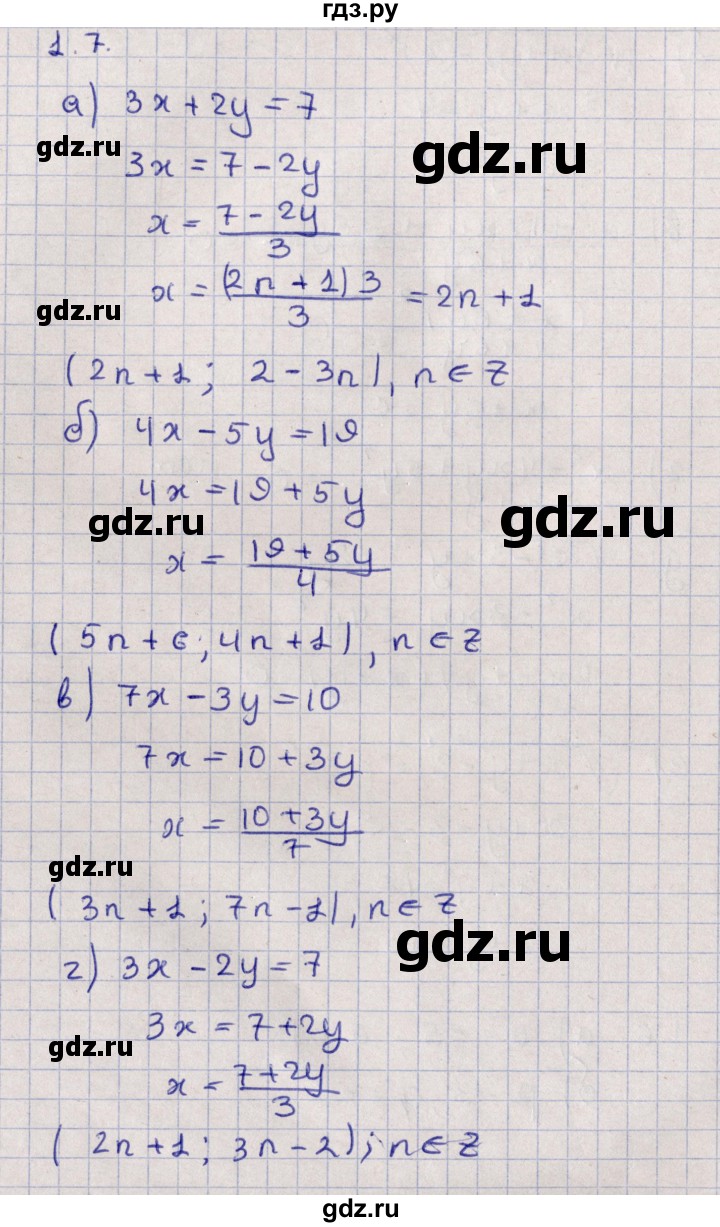 гдз.ру
1.7.
а) 3x + 2y = 7
gdz.ru
gdz.ru
3x = 7 - 2y
x = (7 - 2y)/3
x = ((2n + 1) 3)/3 = 2n + 1
gdz.ru
(2n + 1; 2 - 3n), n ∈ Z
б) 4x - 5y = 19
4x = 19 + 5y
gdz.ru
gdz.ru
x = (19 + 5y)/4
(5n + 6; 4n + 1), n ∈ Z
в) 7x - 3y = 10
7x = 10 + 3y
x = (10 + 3y)/7
gdz.ru
(3n + 1; 7n - 1), n ∈ Z
gdz.ru
г) 3x - 2y = 7
3x = 7 + 2y
gdz.ru
x = (7 + 2y)/3
(2n + 1; 3n - 2); n ∈ Z
gdz.ru